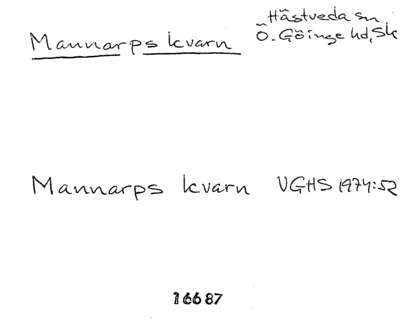 Mannarps kvarn Hästveda sn
Ö. Göinge hd, Sk
Mannarps kvarn VGHS 1974:52
16687